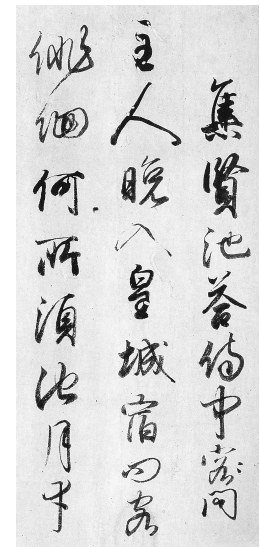 集賢池荅侍中問
主人晚入皇城宿問客
徘徊何所須池月幸